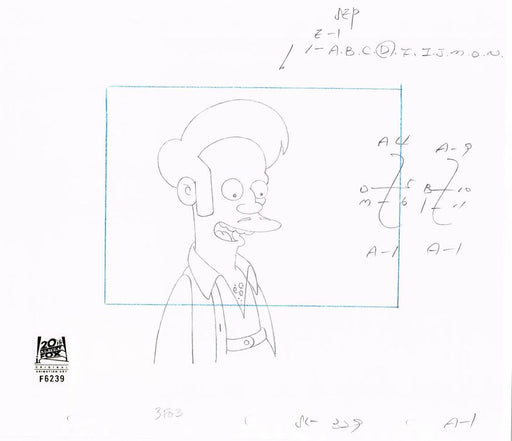 SEP
E-1
1-A.B.C.D.F.I.J.M.O.N.
A4 A-9
D 5 B 10
M 6 1 11
A-1 A-1
20th
CENTURY
FOX
ORIGINAL
ANIMATION ART
F6239
3F03
SC- 339 A-1